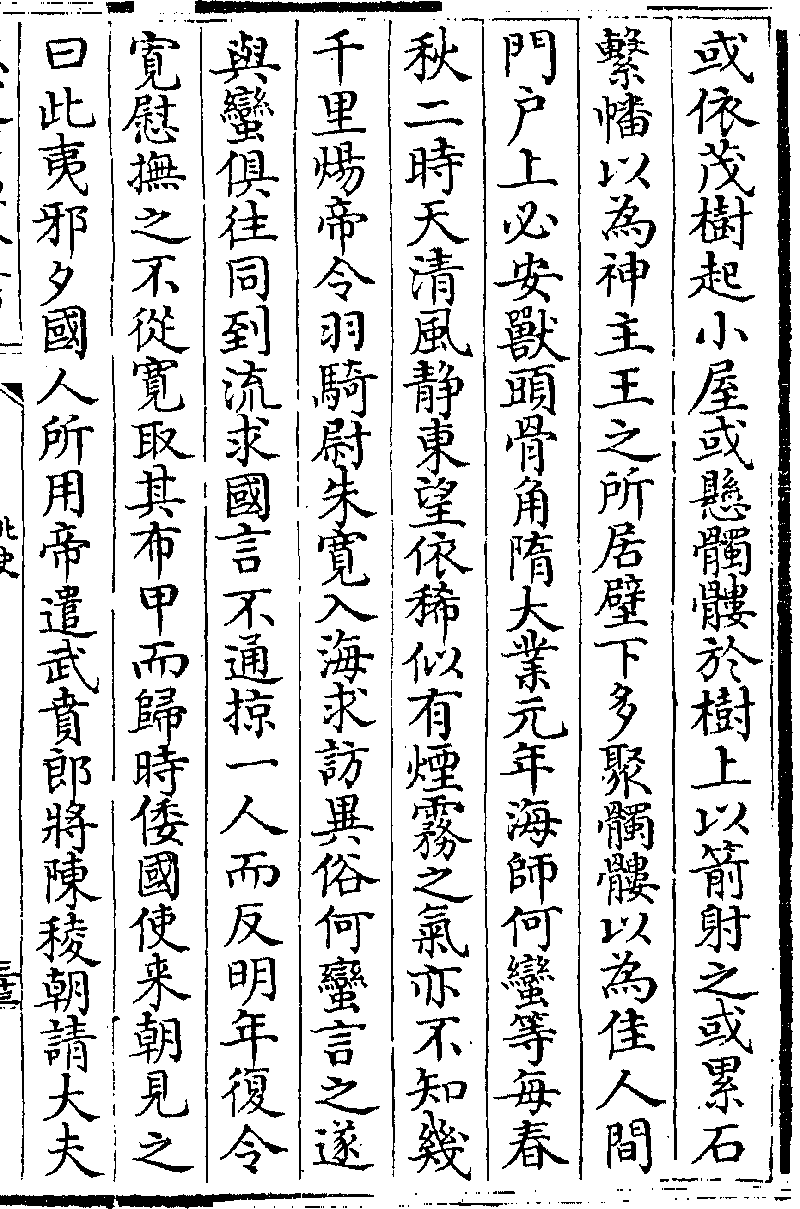 或依茂樹起小屋或懸髑髏於樹上以箭射之或累石
繫幡以為神主王之所居壁下多聚髑髏以為佳人間
門户上必安獸頭骨角隋大業元年海師何蠻等每春
秋二時天清風静東望依稀似有煙霧之氣亦不知幾
千里煬帝令羽騎尉朱寛入海求訪異俗何蠻言之遂
與蠻俱往同到流求國言不通掠一人而反明年復令
寛慰撫之不從寛取其布甲而歸時倭國使来朝見之
曰此夷邪夕國人所用帝遣武賁郎將陳稜朝請大夫